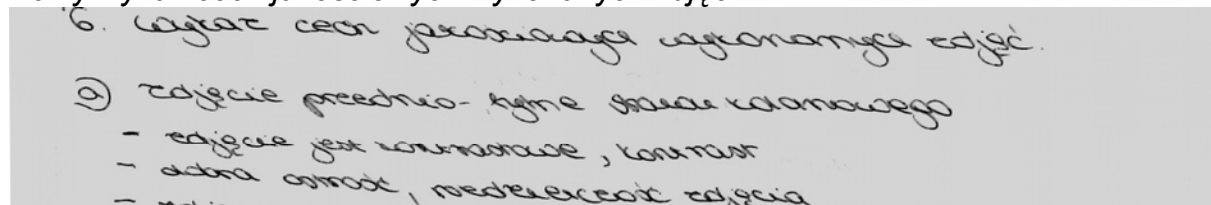 6. Wykaz cech jakościowych wykonanych zdjęć.
a) zdjęcie przednio-tylne stawu kolanowego
- zdjęcie jest kontrastowe, kontrast
- dobra ostrość, rozdzielczość zdjęcia